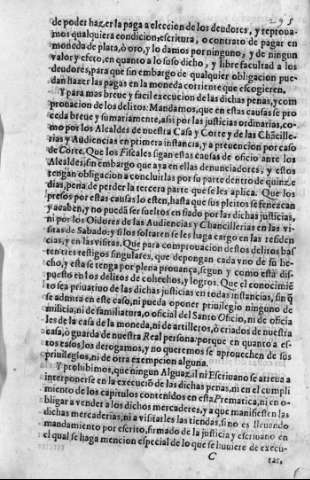 295
de poder hazer la paga a eleccion de los deudores, y reproua-
mos qualquiera condicion, escritura, o contrato de pagar en
moneda de plata, ò oro, y lo damos por ninguno, y de ningun
valor y efeto, en quanto a lo suso dicho, y libre facultad a los
deudores, para que sin embargo de qualquier obligacion pue-
dan hazer las pagas en la moneda corriente que escogieren.
Y para mas breue y facil execucion de las dichas penas, y com
prouacion de los delitos: Mandamos, que en estas causas se pro
ceda breue y sumariamente, assi por las justicias ordinarias, co-
mo por los Alcaldes de nuestra Casa y Corte, y de las Chãcille-
rias y Audiencias en primera instancia, y a preuencion por caso
de Corte. Que los Fiscales sigan estas causas de oficio ante los
Alcaldes, sin embargo que aya en ellas denunciadores, y estos
tengan obligacion a concluirlas por su parte dentro de quinze
dias, pena de perder la tercera parte que se les aplica. Que los
presos por estas causas lo esten, hasta que sus pleitos se fenezcan
y acaben, y no pueda ser sueltos en fiado por las dichas justicias,
ni por los Oidores de las Audiencias y Chancillerias en las vi-
sitas de Sabado; y si los soltaren se les haga cargo en las residen
cias, y en las visitas. Que para comprouacion destos delitos bas-
ten tres testigos singulares, que depongan cada vno de su he-
cho, y esta se tenga por plena prouança, segun y como està dis-
puesto en los delitos de cohechos, y logros. Que el conocimiẽ
to sea priuatiuo de las dichas justicias en todas instancias, sin q̃
se admita en este caso, ni pueda oponer priuilegio ninguno de
milicia, ni de familiatura, o oficial del Santo Oficio, ni de oficia
les de la casa de la moneda, ni de artilleros, ò criados de nuestra
casa, ò guarda de nuestra Real persona: porque en quanto a es-
tos casos los derogamos, y no queremos se aprouechen de sus
priuilegios, ni de otra exempcion alguna.
Y prohibimos, que ningun Alguazil ni Escriuano se atreua a
interponerse en la execuciõ de las dichas penas, ni en el cumpli
miento de los capitulos contenidos en esta Prematica, ni en o-
bligar a vender a los dichos mercaderes, y a que manifiesten las
dichas mercaderias, ni a visitar les las tiendas, si no es lleuando
mandamiento por escrito, firmado de la justicia y escriuano en
el qual se haga mencion especial de lo que se huuiere de execu-
C
tar,